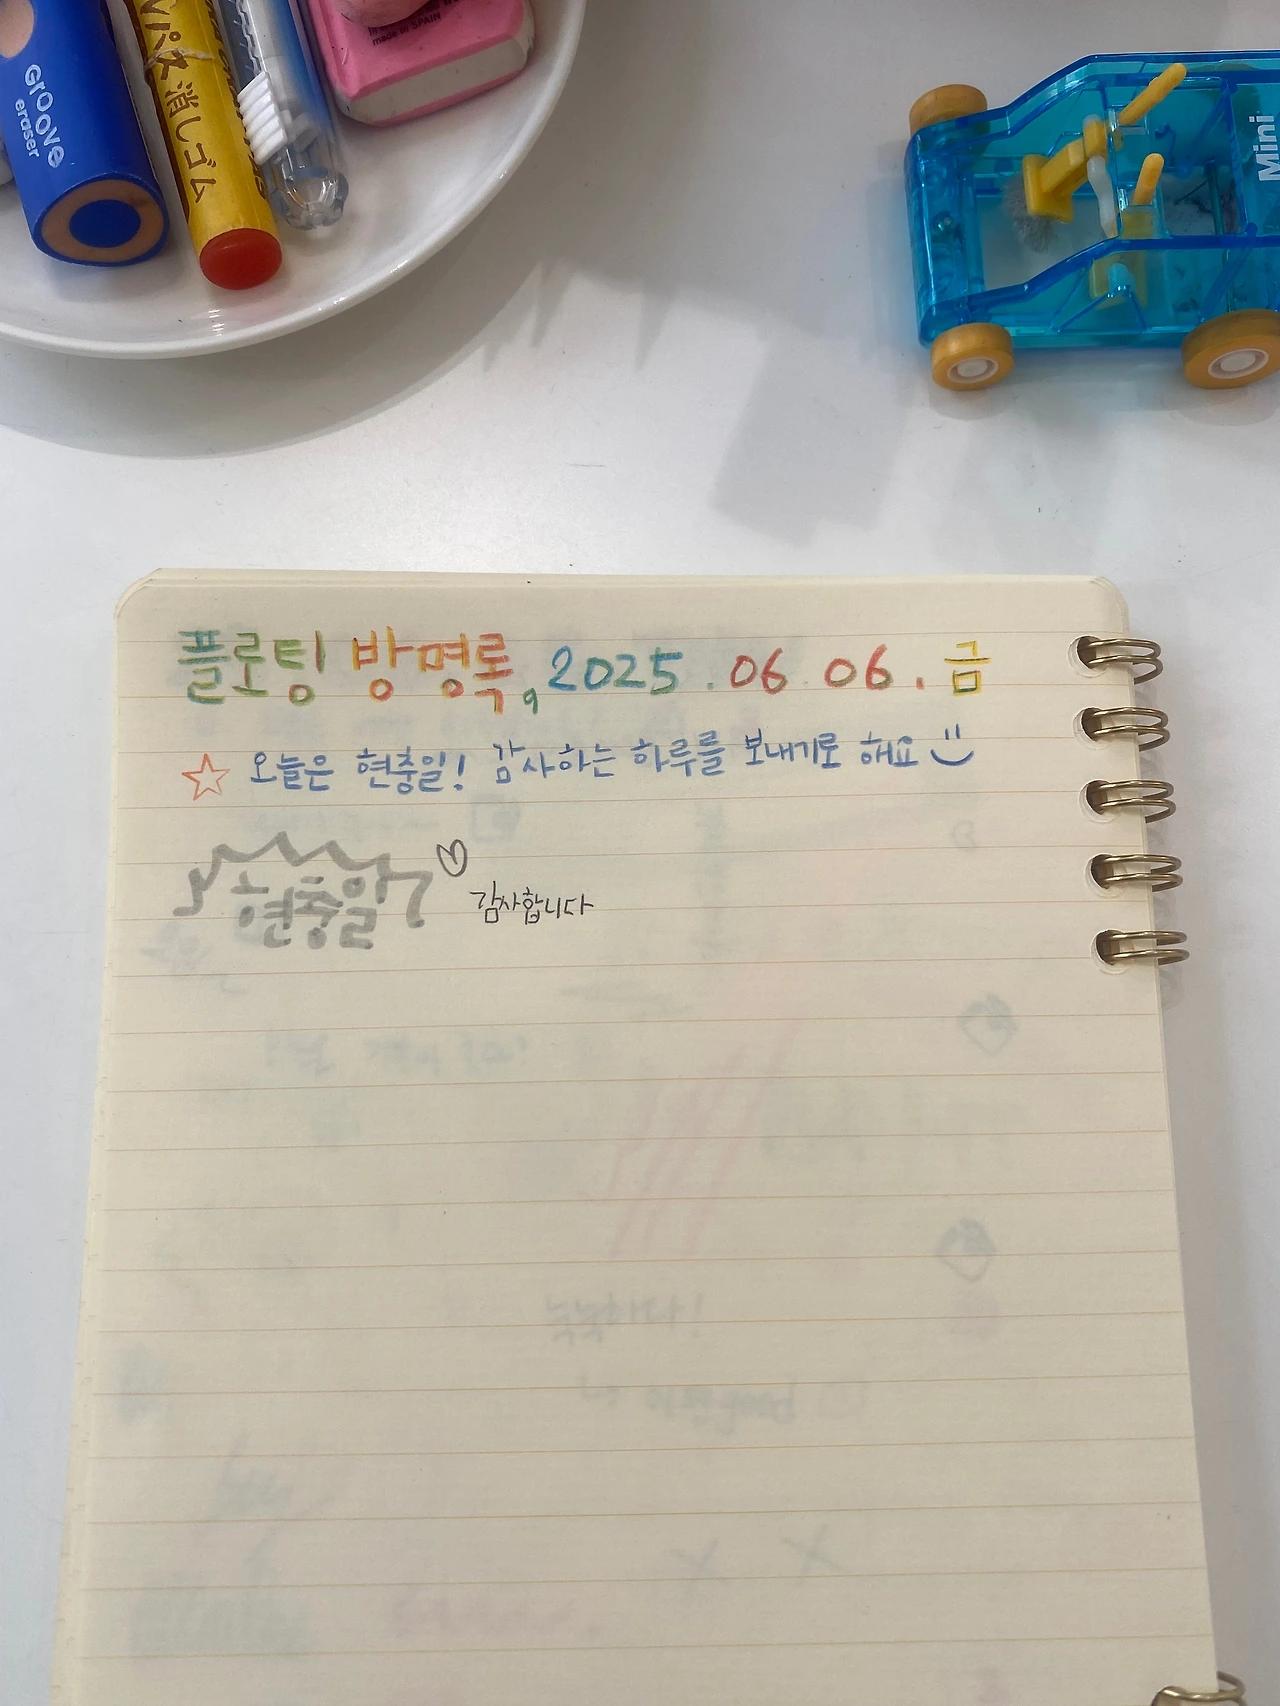 GROOVE
eraser
パス消しゴム
made in SPAIN
Mini
플로팅 방명록, 2025.06.06.금
☆ 오늘은 현충일! 감사하는 하루를 보내기로 해요
현충일
감사합니다